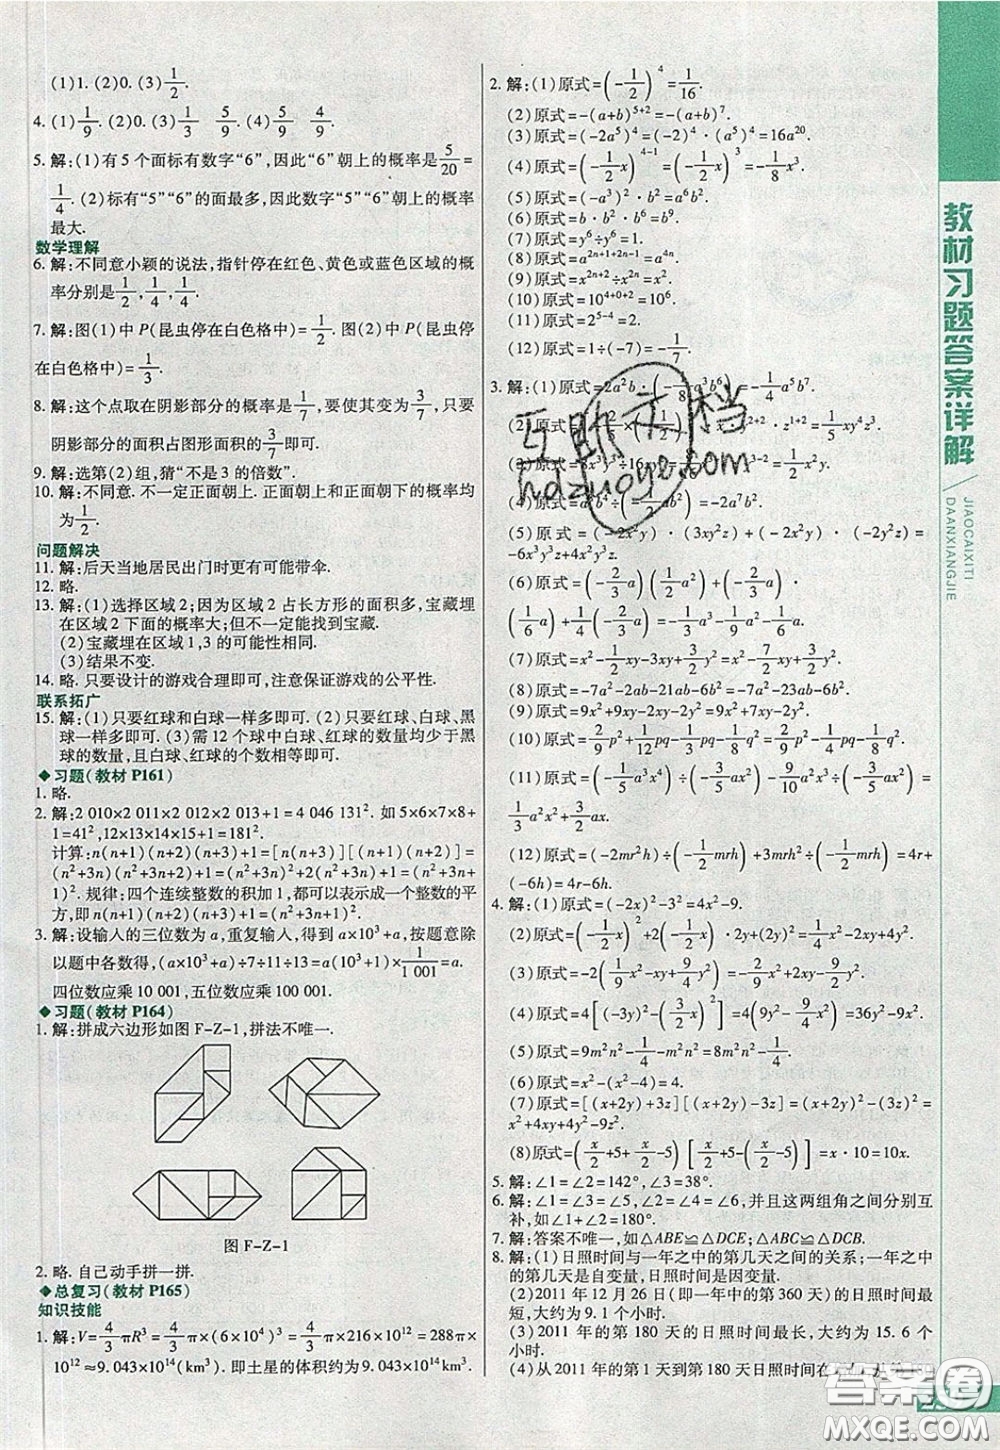 (1)1. (2)0. (3)1/2.
4. (1)1/9. (2)0. (3)1/3 5/9. (4)5/9 4/9.
5. 解:(1)有5个面标有数字“6”,因此“6”朝上的概率是5/20=
1/4. (2)标有“5”“6”的面最多,因此数字“5”“6”朝上的概率
最大.
数学理解
6. 解:不同意小颖的说法,指针停在红色、黄色或蓝色区域的概
率分别是1/2,1/4,1/4.
7. 解:图(1)中P(昆虫停在白色格中)=1/2. 图(2)中P(昆虫停
在白色格中)=1/3.
8. 解:这个点取在阴影部分的概率是1/7,要使其变为3/7,只要
阴影部分的面积占图形面积的3/7即可.
9. 解:选第(2)组,猜“不是3的倍数”.
10. 解:不同意. 不一定正面朝上. 正面朝上和正面朝下的概率均
为1/2.
问题解决
11. 解:后天当地居民出门时更有可能带伞.
12. 略.
13. 解:(1)选择区域2;因为区域2占长方形的面积多,宝藏埋
在区域2下面的概率大;但不一定能找到宝藏.
(2)宝藏埋在区域1,3的可能性相同.
(3)结果不变.
14. 略. 只要设计的游戏合理即可,注意保证游戏的公平性.
联系拓广
15. 解:(1)只要红球和白球一样多即可. (2)只要红球、白球、黑
球一样多即可. (3)需12个球中白球、红球的数量均少于黑
球的数量,且白球、红球的个数相等即可.
◆习题(教材P161)
1. 略.
2. 解:2 010×2 011×2 012×2 013+1=4 046 131². 如5×6×7×8+
1=41²,12×13×14×15+1=181².
计算:n(n+1)(n+2)(n+3)+1=[n(n+3)][(n+1)(n+2)]=
(n²+3n)(n²+3n+2)+1=(n²+3n)²+2(n²+3n)+1=(n²+3n+
1)². 规律:四个连续整数的积加1,都可以表示成一个整数的平
方,即n(n+1)(n+2)(n+3)+1=(n²+3n+1)².
3. 解:设输入的三位数为a,重复输入,得到a×10³+a,按题意除
以题中各数得,(a×10³+a)÷7÷11÷13=a(10³+1)×1/1 001=a.
四位数应乘10 001,五位数应乘100 001.
◆习题(教材P164)
1. 解:拼成六边形如图F-Z-1,拼法不唯一.
图F-Z-1
2. 略. 自己动手拼一拼.
◆总复习(教材P165)
知识技能
1. 解:V=4/3πR³=4/3π×(6×10⁴)³=4/3π×216×10¹²=288π×
10¹²≈9.043×10¹⁴(km³). 即土星的体积约为9.043×10¹⁴km³.
2. 解:(1)原式=(-1/2)⁴=1/16.
(2)原式=-(a+b)⁵⁺²=-(a+b)⁷.
(3)原式=(-2a⁵)⁴=(-2)⁴·(a⁵)⁴=16a²⁰.
(4)原式=(-1/2x)⁴⁻¹=(-1/2x)³=-1/8x³.
(5)原式=(-a³)²·b²=a⁶b².
(6)原式=b·b²·b⁶=b⁹.
(7)原式=y⁶÷y⁶=1.
(8)原式=a²ⁿ⁺¹⁺²ⁿ⁻¹=a⁴ⁿ.
(9)原式=x²ⁿ⁺²÷x²=x²ⁿ.
(10)原式=10⁴⁺⁰⁺²=10⁶.
(11)原式=2⁵⁻⁴=2.
(12)原式=1÷(-7)=-1/7.
3. 解:(1)原式=2a²b·(-1/8a³b⁶)=-1/4a⁵b⁷.
·z¹⁺²=1/5xy⁴z³.
(5)原式=(-2x²y)·(3xy²z)+(-2x²y)·(-2y²z)=
-6x³y³z+4x²y³z.
(6)原式=(-2/3a)(1/2a²)+(-2/3a)(1/6a)+(-2/3a)(1/4)=-1/3a³-1/9a²-1/6a.
(7)原式=x²-1/2xy-3xy+3/2y²=x²-7/2xy+3/2y².
(8)原式=-7a²-2ab-21ab-6b²=-7a²-23ab-6b².
(9)原式=9x²+9xy-2xy-2y²=9x²+7xy-2y².
(11)原式=(-1/5a³x⁴)÷(-3/5ax³)-9/10a²x³÷(-3/5ax³)=
1/3a²x+3/2a.
(12)原式=(-2mr²h)÷(-1/2mrh)+3mrh²÷(-1/2mrh)=4r+
(-6h)=4r-6h.
4. 解:(1)原式=(-2x)²-3²=4x²-9.
(2)原式=(-1/2x)²+2(-1/2x)·2y+(2y)²=1/4x²-2xy+4y².
(4)原式=4[(-3y)²-(3/2x)²]=4(9y²-9/4x²)=36y²-9x².
(5)原式=9m²n²-1/4-m²n²=8m²n²-1/4.
(6)原式=x²-(x²-4)=4.
(7)原式=[(x+2y)+3z][(x+2y)-3z]=(x+2y)²-(3z)²=
x²+4xy+4y²-9z².
(8)原式=(x/2+5+x/2-5)[x/2+5-(x/2-5)]=x·10=10x.
5. 解:∠1=∠2=142°,∠3=38°.
6. 解:∠1=∠3=∠5,∠2=∠4=∠6,并且这两组角之间分别互
补,如∠1+∠2=180°.
7. 解:答案不唯一,如△ABE≌△DCE;△ABC≌△DCB.
8. 解:(1)日照时间与一年之中的第几天之间的关系;一年之中
的第几天是自变量,日照时间是因变量.
(2)2011年12月26日(即一年中的第360天)的日照时间最
短,大约为9.1个小时.
(3)2011年的第180天的日照时间最长,大约为15.6个
小时.
(4)从2011年的第1天到第180天日照时间在
教材习题答案详解
JIAOCAIXITI
DAANXIANGJIE
互助文档
hdzuoye.com
答案圈
MXQE.COM